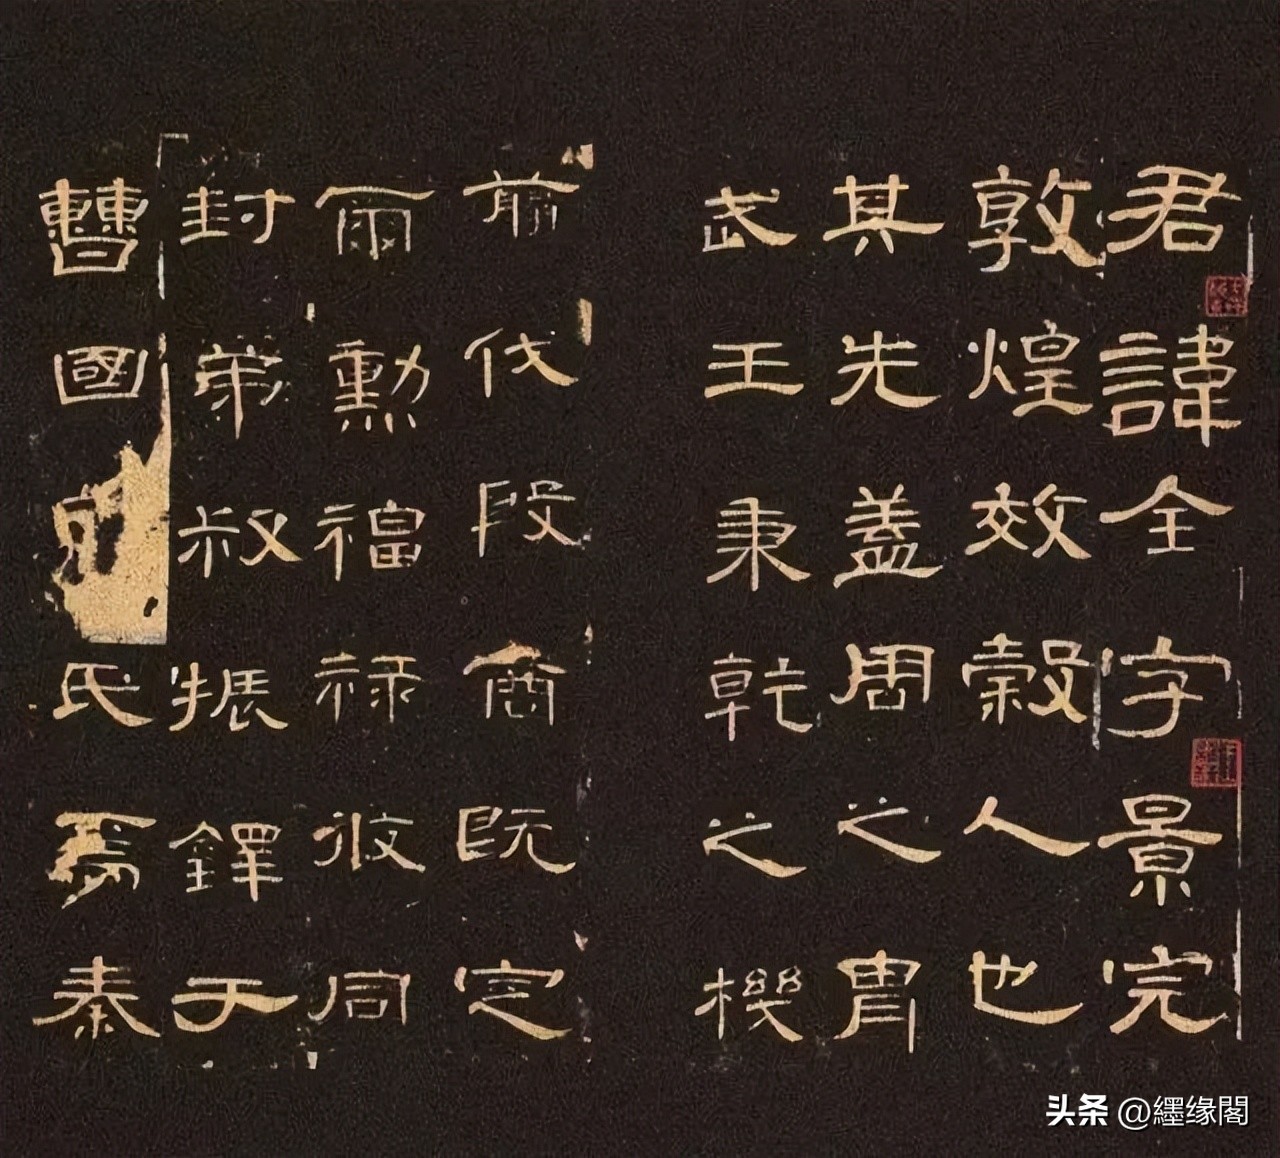 君諱全字景完
敦煌效穀人也
其先蓋周之胄
武王秉乾之機
翦伐殷商既定
爾勳福祿攸同
封弟叔振鐸于
曹國氏焉秦
头条 @纆缘閣